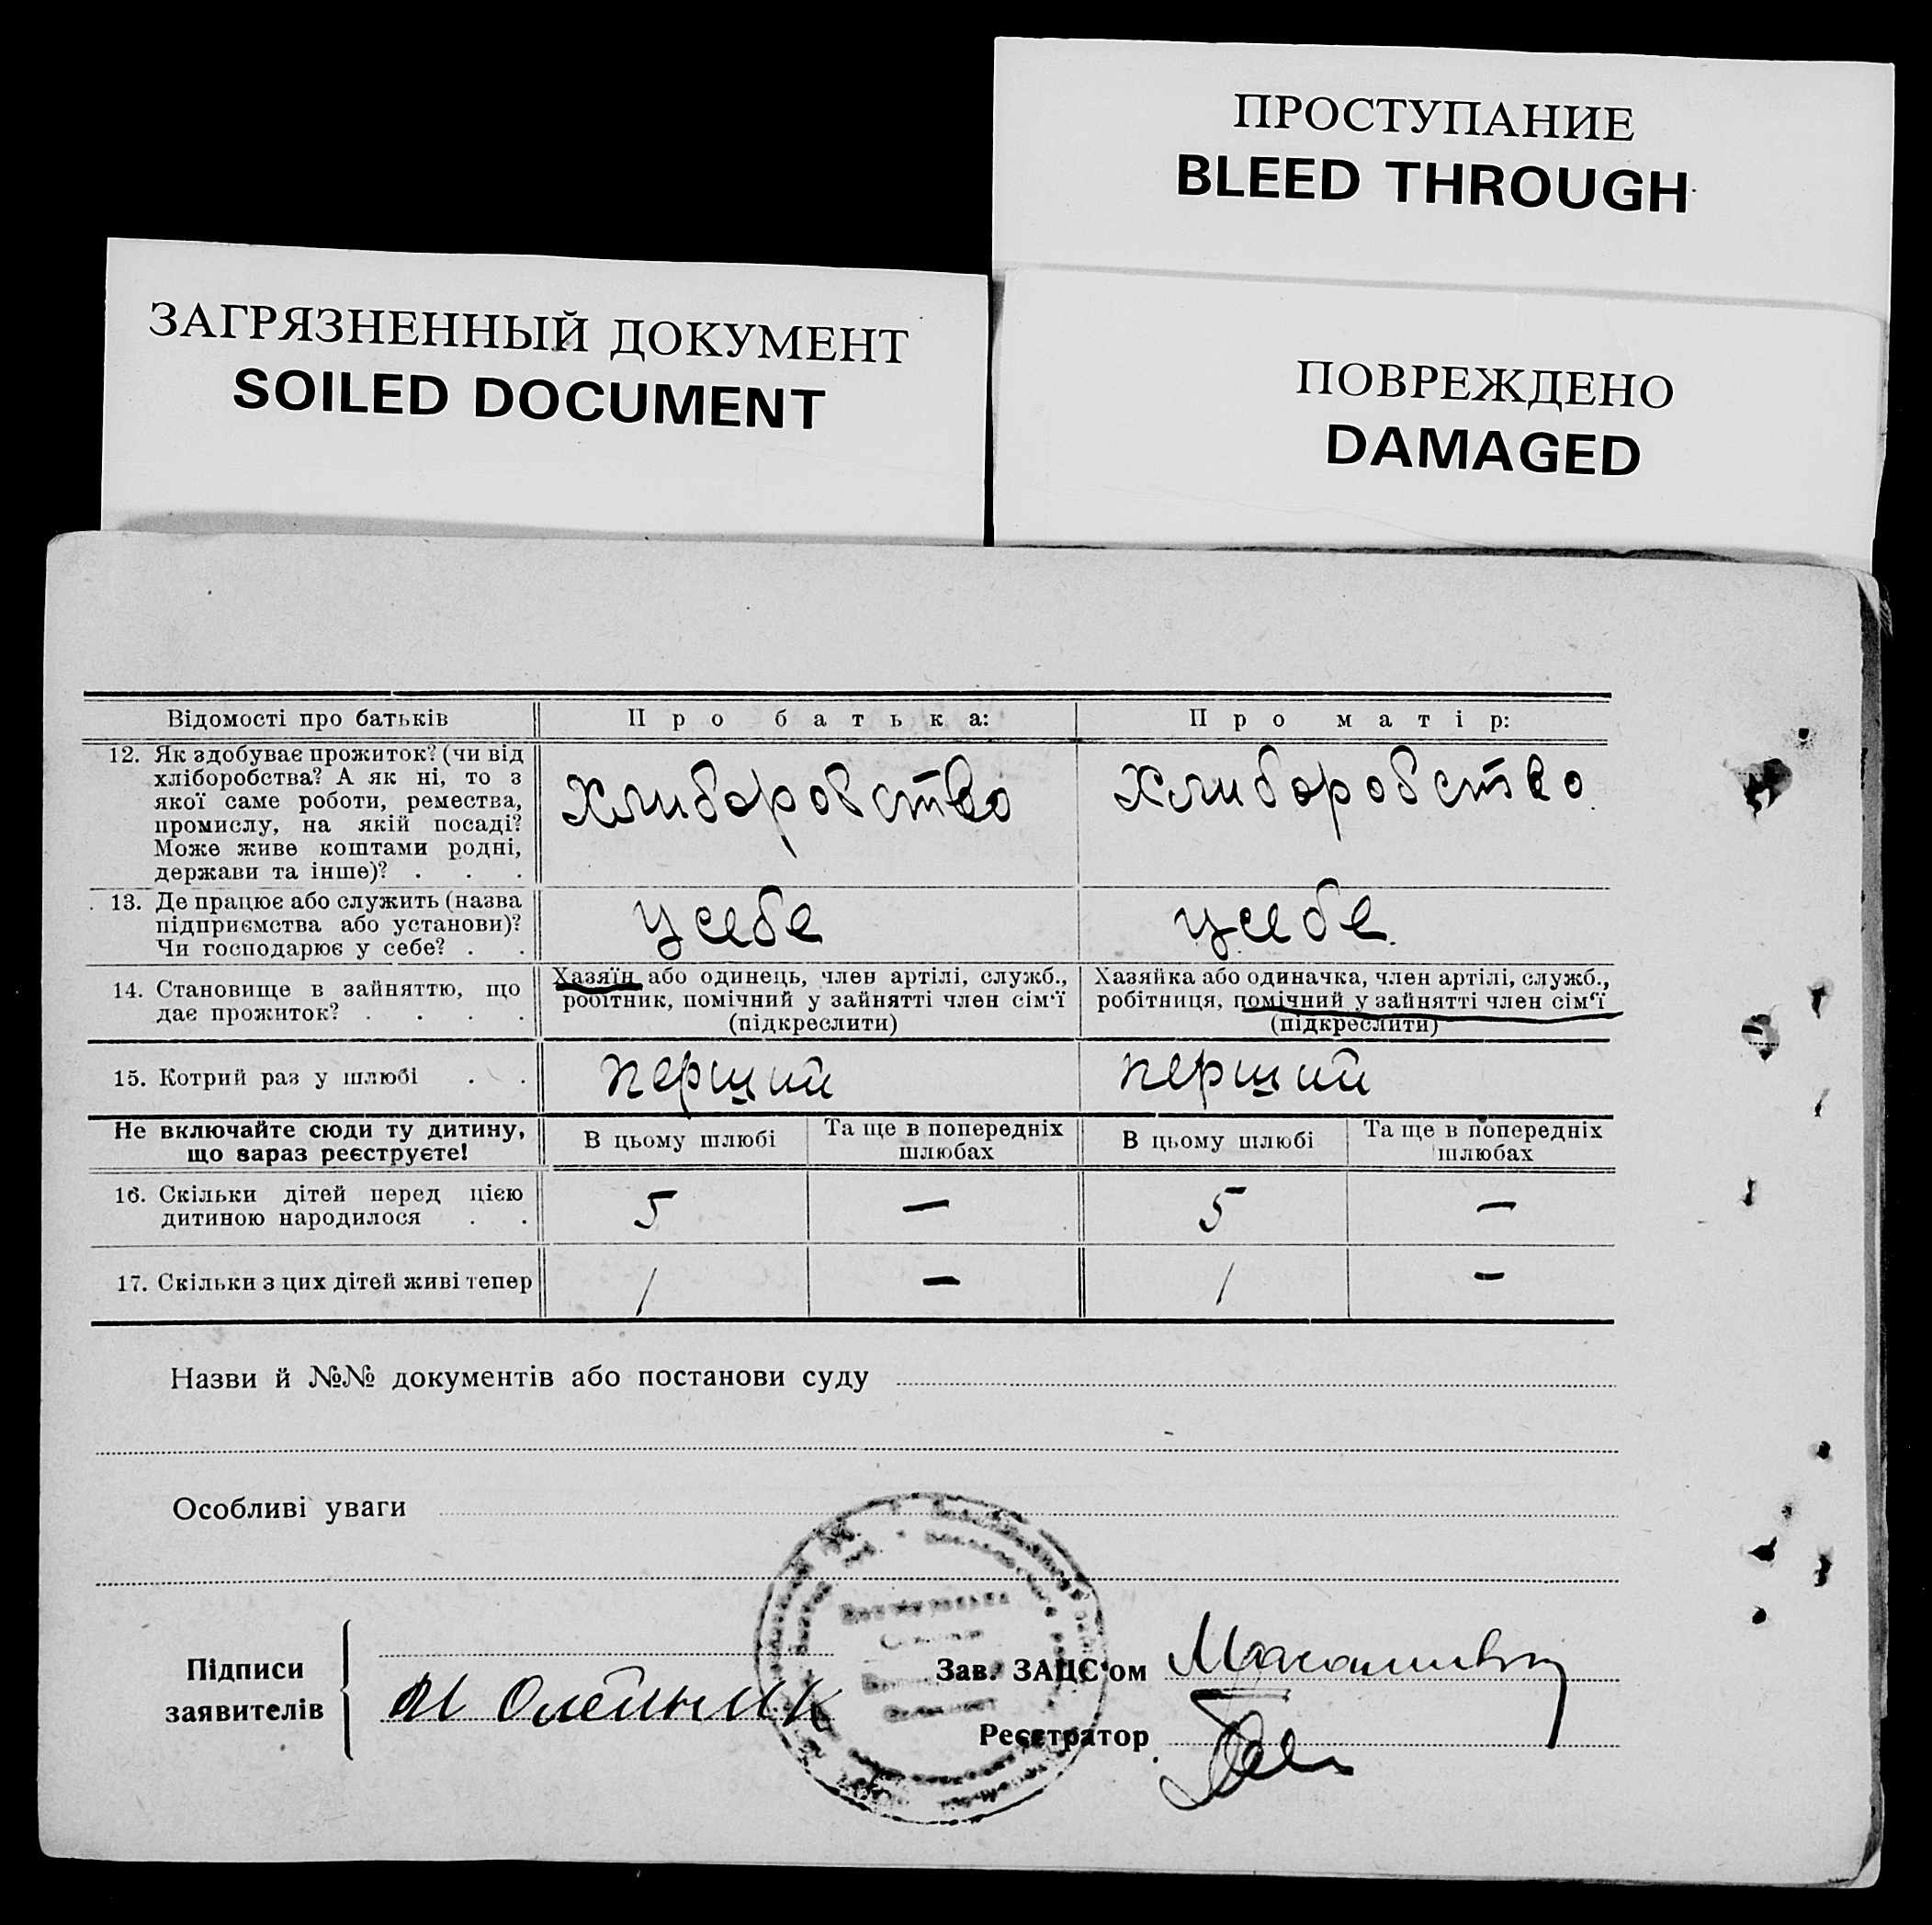 ПРОСТУПАНИЕ
BLEED THROUGH
ЗАГРЯЗНЕННЫЙ ДОКУМЕНТ
SOILED DOCUMENT
ПОВРЕЖДЕНО
DAMAGED
Відомості про батьків
Про батька:
Про матір:
12. Як здобуває прожиток? (чи від
хліборобства? А як ні, то з
якої саме роботи, ремества,
промислу, на якій посаді?
Може живе коштами родні,
держави та інше)? . . .
Хлиборобство
Хлиборобство
13. Де працює або служить (назва
підприємства або установи)?
Чи господарює у себе? . .
у себе
у себе
14. Становище в зайняттю, що
дає прожиток? . . . .
Хазяїн або одинець, член артілі, служб.,
робітник, помічний у зайнятті член сім'ї
(підкреслити)
Хазяйка або одиначка, член артілі, служб.,
робітниця, помічний у зайнятті член сім'ї
(підкреслити)
15. Котрий раз у шлюбі . .
перщий
перщий
Не включайте сюди ту дитину,
що зараз реєструєте!
В цьому шлюбі
Та ще в попередніх
шлюбах
В цьому шлюбі
Та ще в попередніх
шлюбах
16. Скільки дітей перед цією
дитиною народилося . .
5
—
5
—
17. Скільки з цих дітей живі тепер
1
—
1
—
Назви й №№ документів або постанови суду
Особливі уваги
Підписи
заявителів
М Олейник
Зав. ЗАЦС'ом
Реєстратор